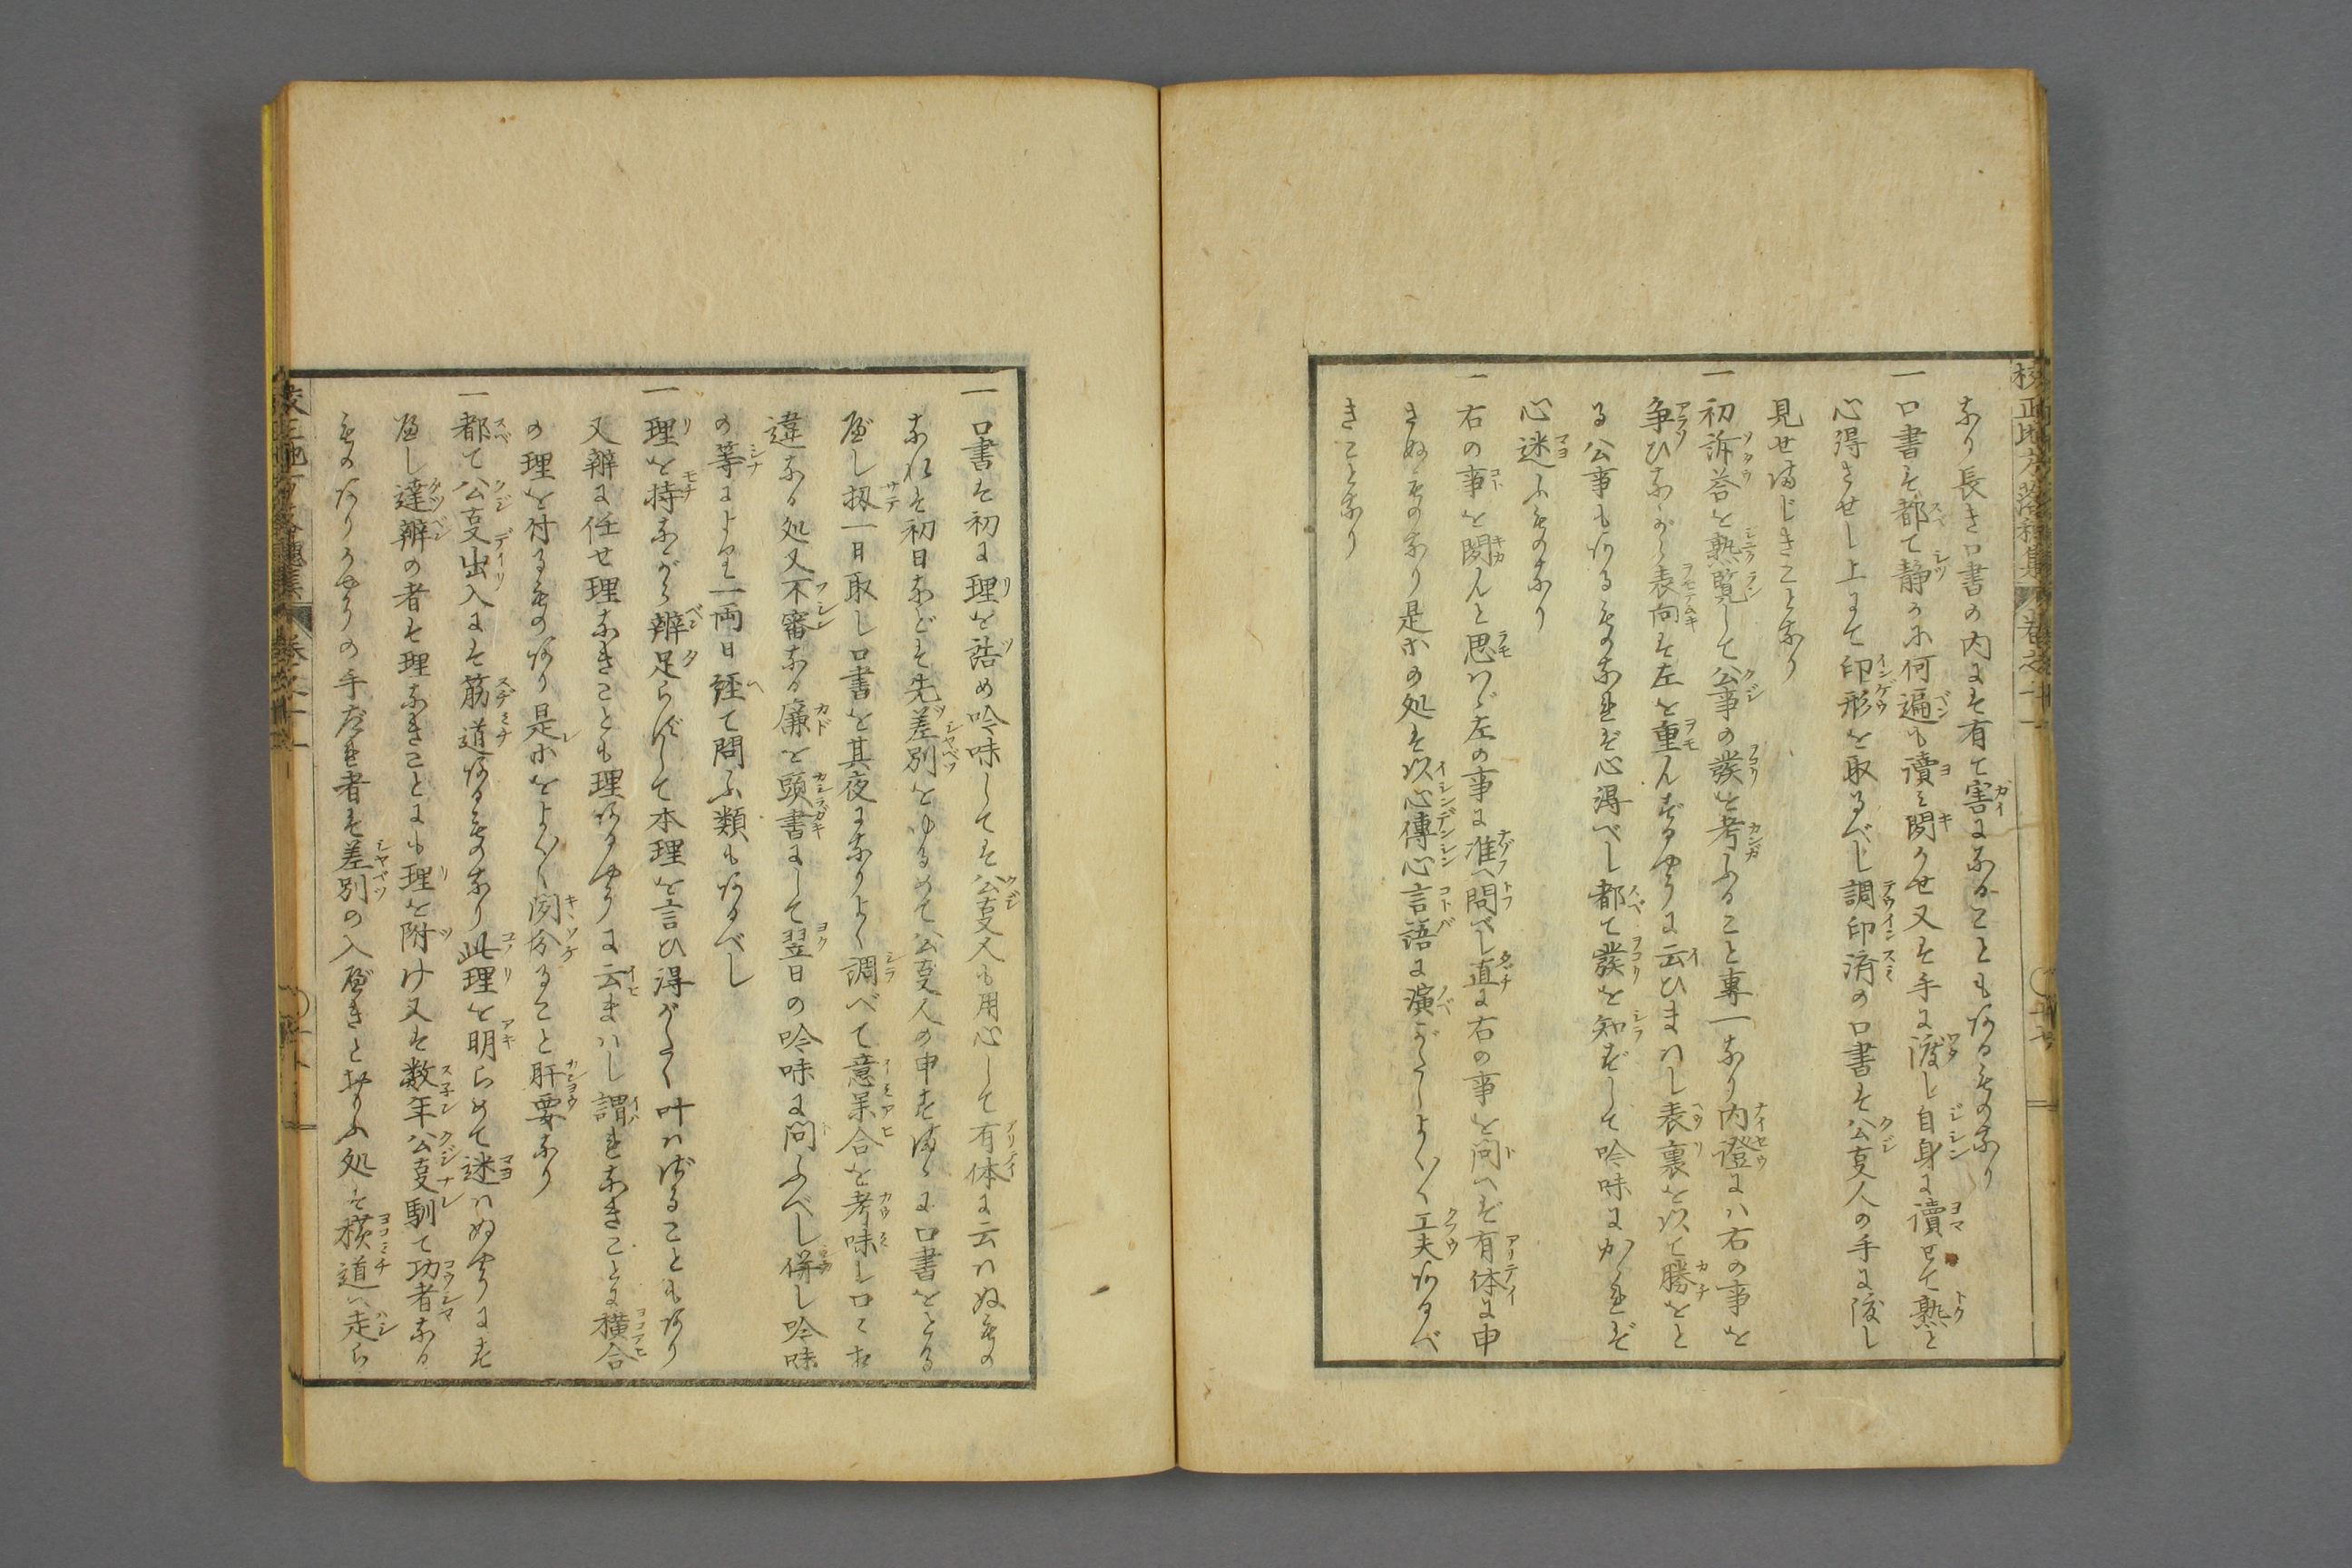 校正地方落穂集 卷之十一
なり長き口書の内にも有て害になることもあるものなり
一口書は都て静かに何遍も讀み聞かせ又は手に渡し自身に讀せて熟と
心得させし上にて印形を取るべし調印済の口書は公事人の手に渡し
見せまじきことなり
一初訴答を熟覽して公事の發を考ふること專一なり内證には右の事を
争ひながら表向は左を重んずるやうに云ひまはし表裏を以て勝をと
る公事もあるものなれば心得べし都て發を知ずして吟味にかゝれば
心迷ふものなり
一右の事を聞んと思はゞ左の事に准へ問べし直に右の事を問へば有体に申
さぬものなり是等の処は以心傳心言語に演がたしよく〳〵工夫あるべ
きことなり
一口書は初に理を詰め吟味しては公事人も用心して有体に云はぬもの
なれは初日などは先差別をゆるめて公事人の申すまゝに口書をとる
べし扨一日取し口書を其夜になりよく調べて意味合を考味し口々相
違なる処又不審なる廉を頭書にして翌日の吟味に問ふべし併し吟味
の等により一両日經て問ふ類もあるべし
一理を持ながら辯足らずして本理を言ひ得がたく叶はざることもあり
又辯に任せ理なきことも理あるやうに云まはし謂れなきことに横合
の理を付るものあり是等をよく〳〵聞分ること肝要なり
一都て公事出入には筋道あるものなり此理を明らめて迷はぬやうにす
べし達辯の者は理なきことにも理を附け又は数年公事馴て功者なる
ものありかやうの手だれ者は差別の入べきと思ふ処を横道へ走ら
校正地方落穂集 卷之十一